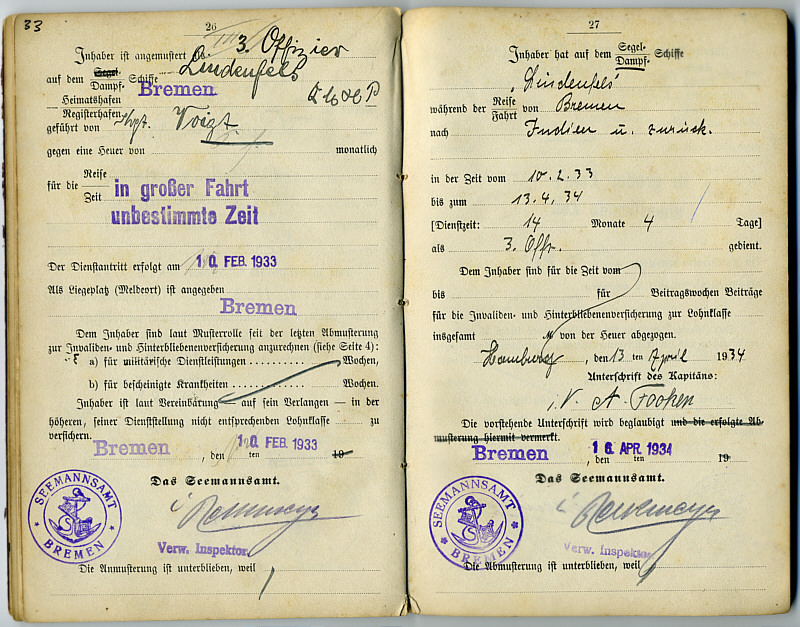 33
26
Inhaber ist angemustert als 3. Offizier
auf dem Segel- Dampf- Schiffe Lindenfels
Heimatshafen Registerhafen Bremen
geführt von Kapt. Voigt
gegen eine Heuer von monatlich
für die Reise Zeit in großer Fahrt
unbestimmte Zeit
Der Dienstantritt erfolgt am 10. FEB. 1933
Als Liegeplatz (Meldeort) ist angegeben
Bremen
Dem Inhaber sind laut Musterrolle seit der letzten Abmusterung
zur Invaliden- und Hinterbliebenenversicherung anzurechnen (siehe Seite 4):
a) für militärische Dienstleistungen .......... Wochen,
b) für bescheinigte Krankheiten .............. Wochen.
Inhaber ist laut Vereinbarung — auf sein Verlangen — in der
höheren, seiner Dienststellung nicht entsprechenden Lohnklasse zu
versichern.
Bremen, den 10. FEB. 1933 ten 19
Das Seemannsamt.
Verw. Inspektor.
SEEMANNSAMT
BREMEN
Die Anmusterung ist unterblieben, weil
27
Inhaber hat auf dem Segel- Dampf- Schiffe
"Lindenfels"
während der Reise Fahrt von Bremen
nach Indien u. zurück.
in der Zeit vom 10. 2. 33
bis zum 13. 4. 34
[Dienstzeit: 14 Monate 4 Tage]
als 3. Offr. gedient.
Dem Inhaber sind für die Zeit vom
bis für Beitragswochen Beiträge
für die Invaliden- und Hinterbliebenenversicherung zur Lohnklasse
insgesamt von der Heuer abgezogen.
Hamburg, den 13 ten April 1934
Unterschrift des Kapitäns:
i. V. A. Fooken
Die vorstehende Unterschrift wird beglaubigt und die erfolgte Ab-
musterung hiermit vermerkt.
Bremen, den 16. APR. 1934 ten 19
Das Seemannsamt.
Verw. Inspektor.
SEEMANNSAMT
BREMEN
Die Abmusterung ist unterblieben, weil